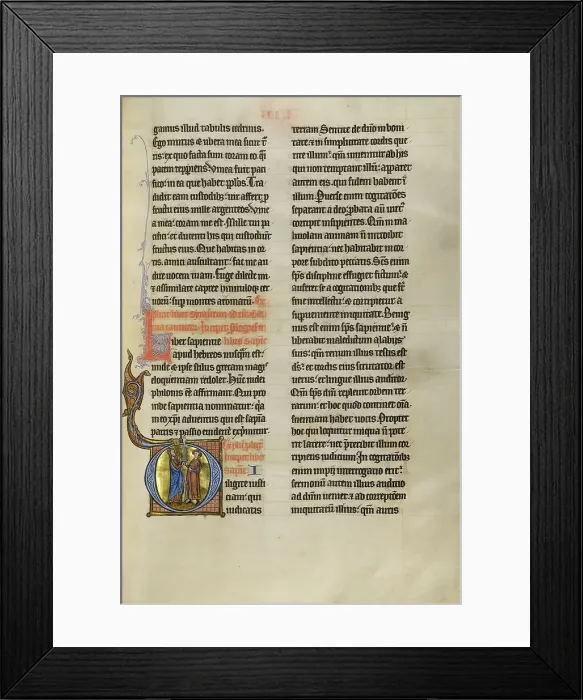 gamus illud tabulis cedrinis.
Ego murus & ubera mea sicut t
ris: ex quo facta sum coram eo q̄
pacem reperiens. Vinea fuit paci
fico: in ea que habet ipsos. Tra
didit eam custodibz: uir affert p
fructu eius mille argenteos. Vine
a mea: coram me est. Mille tui pa
cifici: et ducenti his qui custodiunt
fructus eius. Que habitas in or
tis: amici auscultant: fac me au
dire uocem tuam. Fuge dilecte mi:
& assimilare capree hinnuloqz cer
uorum: sup montes aromatum.
Liber sapientie
apud hebreos nusqm est:
unde & ipse stilus grecam magis
eloquentiam redolet. Hunc iudei
philonis eē affirmant. Qui pro
inde sapientia nominatur: quia
in eo xpi aduentus qui est sapia
patris & passio euidenter exprimitur.
D
I
iligite iusti
ciam: qui
iudicatis
terram. Sentite de dno in boni
tate: & in simplicitate cordis que
rite illum: qm inuenitur ab his
qui non temptant illum: apparet
autem eis: qui fidem habent i
illum. Peruerse enim cogitationes
separant a deo: probata aut uirtus
corripit insipientes. Qm in ma
liuolam animam n introibit
sapientia: nec habitabit in cor
pore subdito peccatis. Sps enim
sps discipline effugiet fictum: &
auferet se a cogitationibz que st
sine intellectu: & corripietur a
superueniente iniquitate. Benig
nus est enim sps sapientie: & n
liberabit maledictum a labiis
suis: qm renum illius testis est
ds: et cordis eius scrutator est
uerus: et lingue illius auditor.
Qm sps dni repleuit orbem ter
rarum: et hoc quod continet omia
scientiam habet uocis. Propter
hoc qui loquitur iniqua n pote
rit latere: nec preteriet illum cor
ripiens iudicium. In cogitationibz
enim impii interrogatio erit:
sermonum autem illius auditio
ad dm ueniet: & ad correptionem
iniquitatum illius: qm auris